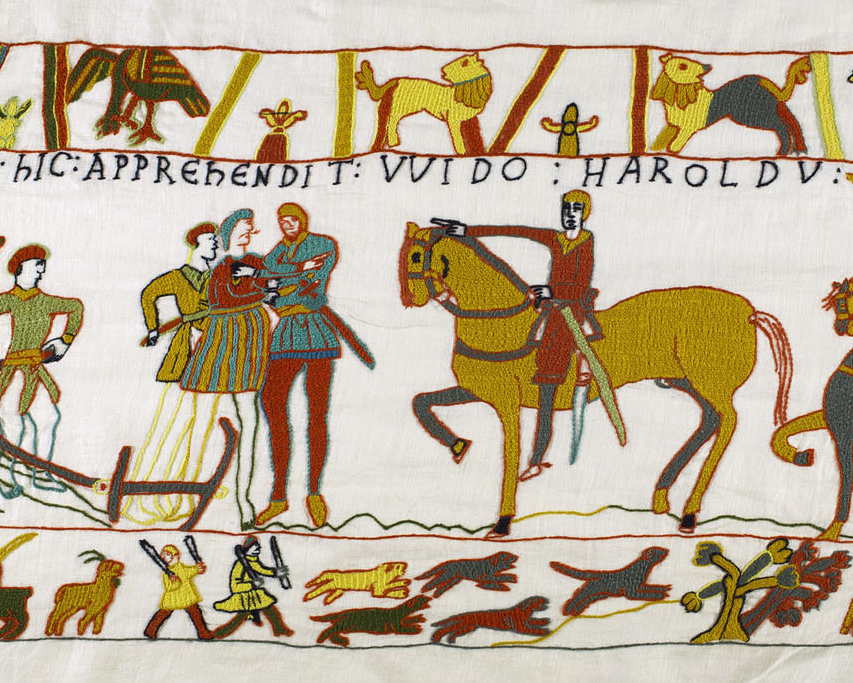 · hIC: APPREhENDIT: VVIDO : HAROLDV: